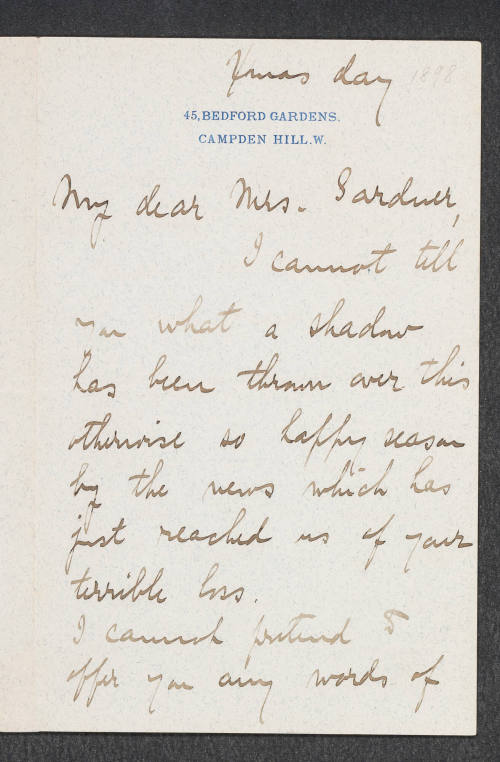 Xmas day 1898
45, BEDFORD GARDENS.
CAMPDEN HILL.W.
My dear Mrs. Gardner,
I cannot tell
you what a shadow
has been thrown over this
otherwise so happy season
by the news which has
just reached us of your
terrible loss.
I cannot pretend to
offer you any words of